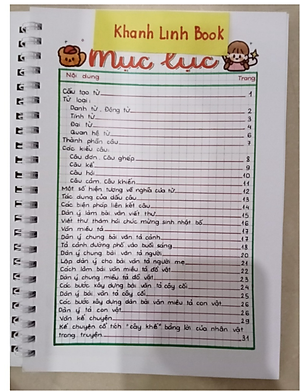 Khanh Linh Book
Mục lục
Nội dung Trang
Cấu tạo từ 1
Từ loại:
Danh từ, Động từ 2
Tính từ 3
Đại từ 4
Quan hệ từ 6
Thành phần câu 7
Các kiểu câu:
Câu đơn, Câu ghép 8
Câu kể 9
Câu hỏi 10
Câu cảm, Câu khiến 11
Một số hiện tượng về nghĩa của từ 12
Tác dụng của dấu câu 13
Các biện pháp liên kết câu 14
Dàn ý làm bài văn viết thư 15
Viết thư thăm hỏi chúc mừng sinh nhật bố 16
Văn miêu tả 17
Dàn ý chung bài văn tả cảnh 17
Tả cảnh đường phố vào buổi sáng 18
Dàn ý chung bài văn tả người 20
Lập dàn ý cho bài văn tả người mẹ 21
Cách làm bài văn miêu tả đồ vật 22
Dàn ý chung miêu tả đồ vật 23
Các bước xây dựng bài văn tả cây cối 24
Dàn ý bài văn tả cây cối 25
Các bước xây dựng dàn bài văn miêu tả con vật 26
Dàn ý tả con vật 28
Văn kể chuyện 29
Kể chuyện cổ tích "cây khế" bằng lời của nhân vật
trong truyện 31